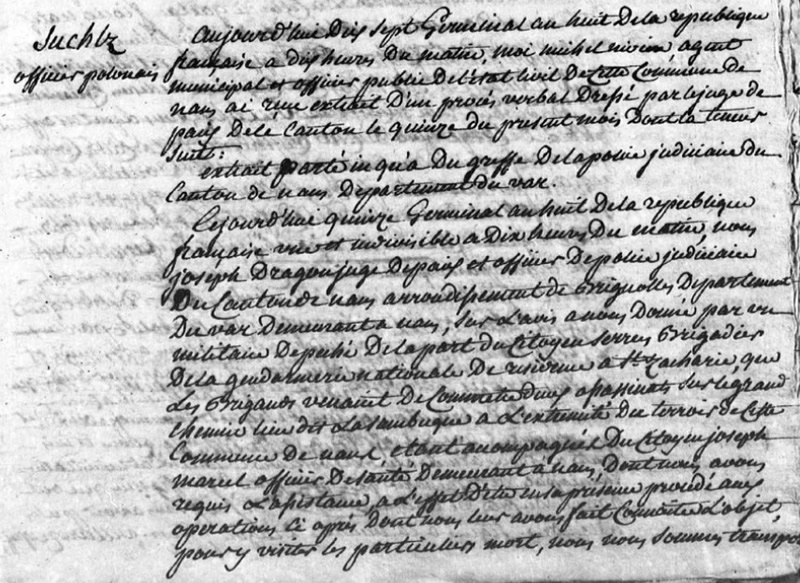 Suchlz
officier polonais
aujourd'hui dix sept Germinal an huit De la republique
française a dix heures Du matin, moi michel agent
municipal et officier public De l'état civil De Cette Commune de
nans ai reçu extrait D'un procés verbal Dressé par le juge de
paix De Ce Canton le quinze du present mois Dont la teneur
suit:
extrait Du greffe De la police judiciaire du
Canton de nans Departement du var.
Cejourd'hui quinze Germinal an huit De la republique
française une et indivisible a Dix heures Du matin nous
joseph Dragon juge De paix et officier De police judiciaire
Du Canton de nans arrondissement de Brignolles Departement
Du var Demeurant a nans, sur l'avis a nous Donné par un
militaire Deputé De la part du Citoyen serres Brigadier
De la gendarmerie nationale De residence a St Zacharie, que
Les Brigands venant de Commettre Deux assassinats sur le grand
chemin lieu dit a la sambuque a L'extremité du terroir de Cette
Commune de nans, etant accompagnés Du Citoyen joseph
marcel officier De santé Demeurant a nans, Dont nous avons
requis L'assistance, a L'effet D'etre en sa présence procédé aux
operations Ci aprés Dont nous leur avons fait Connoitre L'objet,
pour y visiter les particuliers mort, nous nous sommes transpor